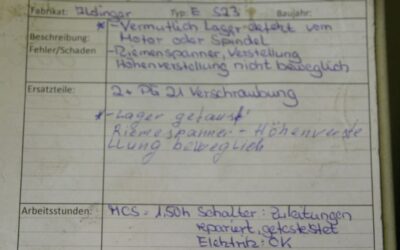 Fabrikat: Typ: E S23 Baujahr:
* - Vermutlich Lager defekt vom
Beschreibung: Motor oder Spindel
Fehler/Schaden - Riemenspanner, Verstellung
Höhenverstellung nicht beweglich
Ersatzteile: 2x PG 21 Verschraubung
* - Lager getaus
Riemespanner - Höhenverste
llung beweglich
Arbeitsstunden: MCS = 1,50h Schalter: Zuleitungen
repariert, getestet
Elektrik: OK